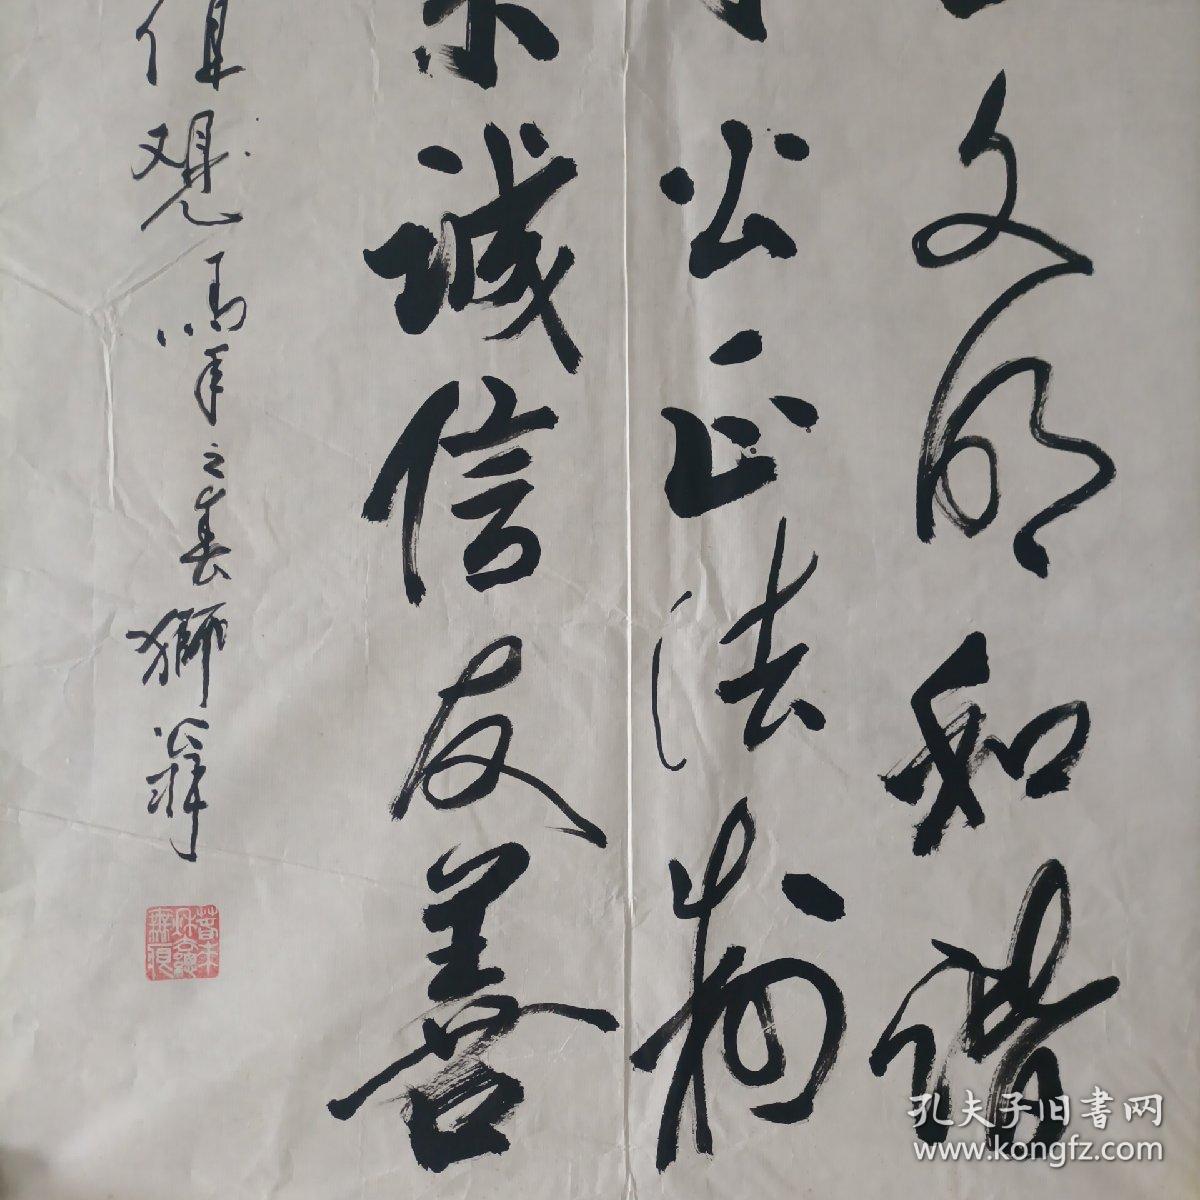 文明和谐
公正法制
業诚信友善
值观馬年之春獅翁
孔夫子旧书网
www.kongfz.com